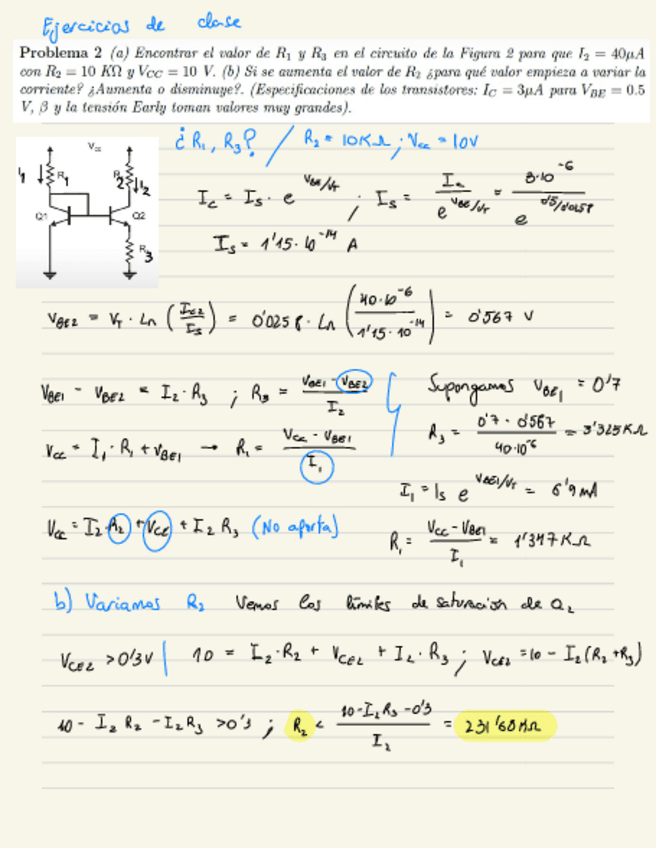 Ejercicios de clase
Problema 2 (a) Encontrar el valor de R1 y R3 en el circuito de la Figura 2 para que I2 = 40μA
con R2 = 10 KΩ y VCC = 10 V. (b) Si se aumenta el valor de R2 ¿para qué valor empieza a variar la
corriente? ¿Aumenta o disminuye?. (Especificaciones de los transistores: IC = 3μA para VBE = 0.5
V, β y la tensión Early toman valores muy grandes).
¿R1, R3? / R2 = 10KΩ ; Vcc = 10V
Vcc
R1 R2 I2
Q1 Q2
R3
Ic = Is · e^(VBE/VT) ; Is = Ic / e^(VBE/VT) = 3·10^-6 / e^(0'5/0'0258)
Is = 1'15·10^-14 A
VBE2 = VT · Ln (Ic2/Is) = 0'0258 · Ln (40·10^-6 / 1'15·10^-14) = 0'567 V
VBE1 - VBE2 = I2 · R3 ; R3 = (VBE1 - VBE2) / I2
Supongamos VBE1 = 0'7
R3 = (0'7 - 0'567) / 40·10^-6 = 3'325KΩ
Vcc = I1 · R1 + VBE1 → R1 = (Vcc - VBE1) / I1
I1 = Is e^(VBE1/VT) = 6'9 mA
Vcc = I2 · R2 + VCE + I2 R3 (No aporta)
R1 = (Vcc - VBE1) / I1 = 1'347KΩ
b) Variamos R2 Vemos los límites de saturación de Q2
VCE2 > 0'3V | 10 = I2 · R2 + VCE2 + I2 · R3 ; VCE2 = 10 - I2 (R2 + R3)
10 - I2 R2 - I2 R3 > 0'3 ; R2 < (10 - I2 R3 - 0'3) / I2 = 231'68 KΩ